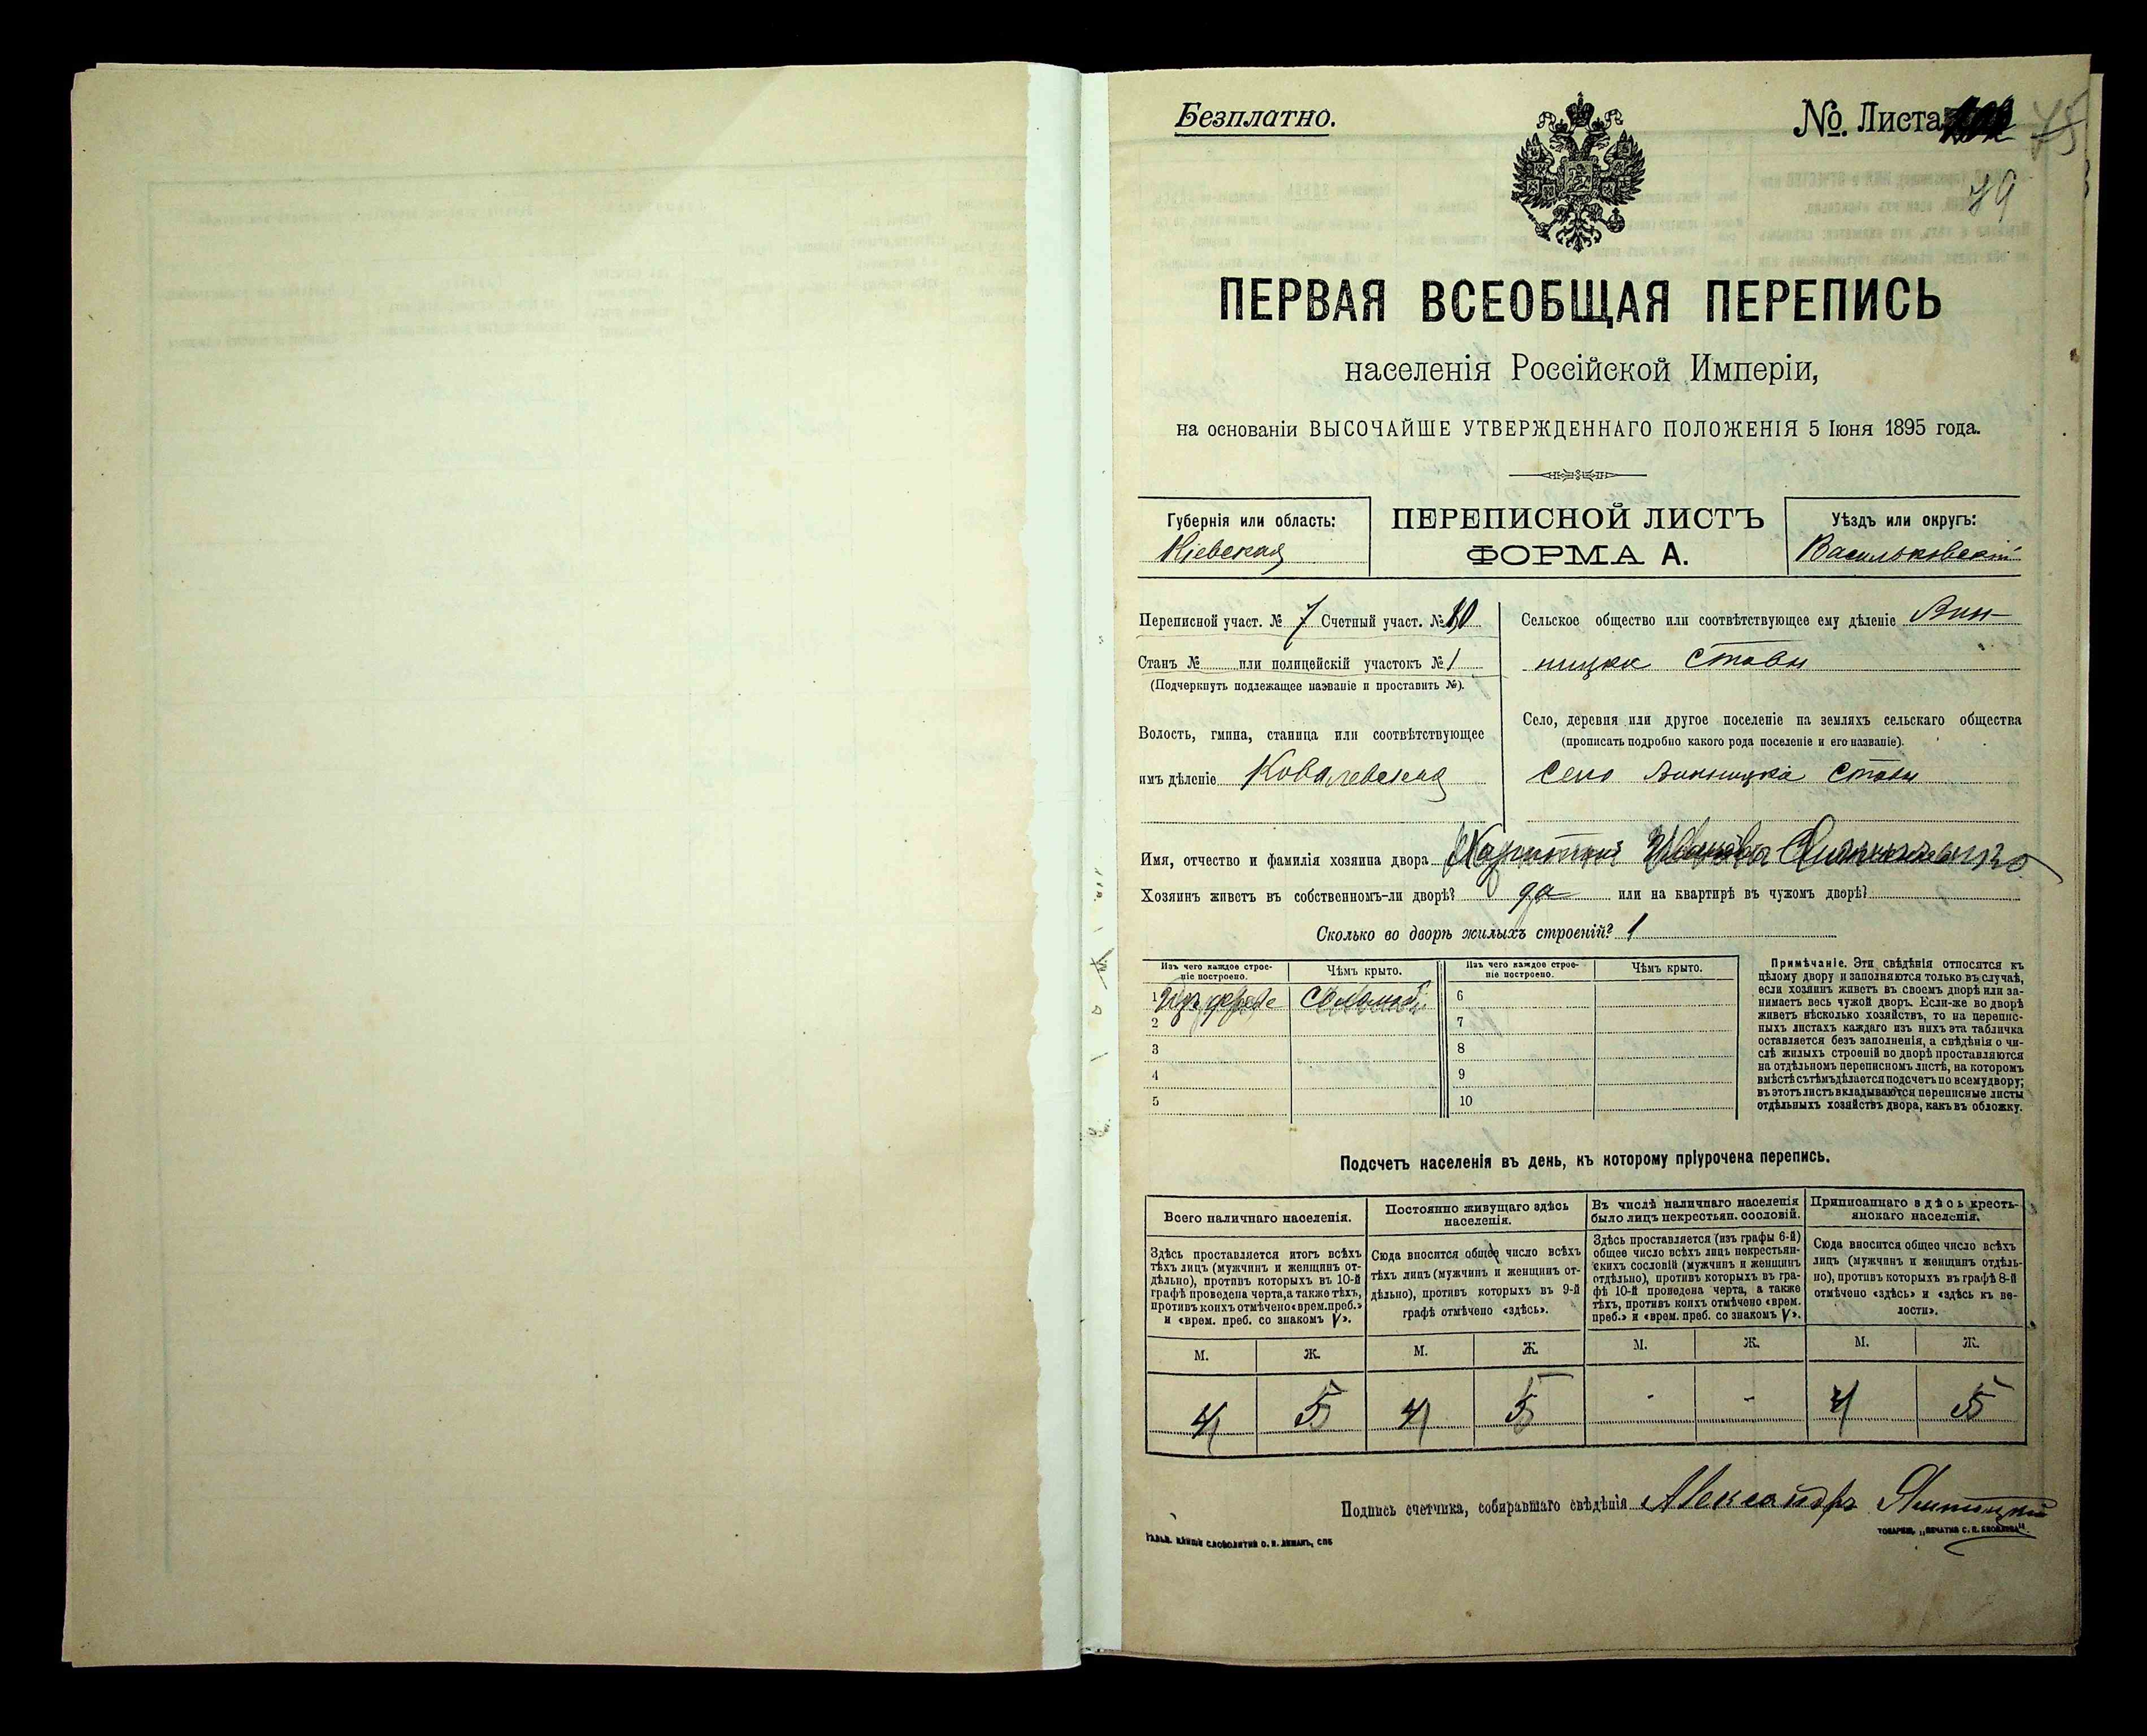 Безплатно.
№ Листа 75
79
ПЕРВАЯ ВСЕОБЩАЯ ПЕРЕПИСЬ
населенія Россійской Имперіи,
на основаніи ВЫСОЧАЙШЕ УТВЕРЖДЕННАГО ПОЛОЖЕНІЯ 5 Іюня 1895 года.
Губернія или область:
Кіевская
ПЕРЕПИСНОЙ ЛИСТЪ
ФОРМА А.
Уѣздъ или округъ:
Васильковскій
Переписной участ. № 7 Счетный участ. № 10
Станъ № или полицейскій участокъ № 1
(Подчеркнуть подлежащее названіе и проставить №).
Волость, гмина, станица или соотвѣтствующее
имъ дѣленіе Ковалевская
Сельское общество или соотвѣтствующее ему дѣленіе Вин-
ницки Ставы
Село, деревня или другое поселеніе на земляхъ сельскаго общества
(прописать подробно какого рода поселеніе и его названіе).
Село Винницкіе Ставы
Имя, отчество и фамилія хозяина двора Иванова
Хозяинъ живетъ въ собственномъ-ли дворѣ? да или на квартирѣ въ чужомъ дворѣ?
Сколько во дворѣ жилыхъ строеній? 1
Изъ чего каждое строе-
ніе построено.
Чѣмъ крыто.
Изъ чего каждое строе-
ніе построено.
Чѣмъ крыто.
1 Изъ дерева Соломой
2
3
4
5
6
7
8
9
10
Примѣчаніе. Эти свѣдѣнія относятся къ
цѣлому двору и заполняются только въ случаѣ,
если хозяинъ живетъ въ своемъ дворѣ или за-
нимаетъ весь чужой дворъ. Если-же во дворѣ
живетъ нѣсколько хозяйствъ, то на перепис-
ныхъ листахъ каждаго изъ нихъ эта табличка
оставляется безъ заполненія, а свѣдѣнія о чи-
слѣ жилыхъ строеній во дворѣ проставляются
на отдѣльномъ переписномъ листѣ, на которомъ
вмѣстѣ съ тѣмъ дѣлается подсчетъ по всему двору;
въ этотъ листъ вкладываются переписные листы
отдѣльныхъ хозяйствъ двора, какъ въ обложку.
Подсчетъ населенія въ день, къ которому пріурочена перепись.
Всего наличнаго населенія.
Здѣсь проставляется итогъ всѣхъ
тѣхъ лицъ (мужчинъ и женщинъ от-
дѣльно), противъ которыхъ въ 10-й
графѣ проведена черта, а также тѣхъ,
противъ коихъ отмѣчено «врем. преб.»
и «врем. преб. со знакомъ V».
Постоянно живущаго здѣсь
населенія.
Сюда вносится общее число всѣхъ
тѣхъ лицъ (мужчинъ и женщинъ от-
дѣльно), противъ которыхъ въ 9-й
графѣ отмѣчено «здѣсь».
Въ числѣ наличнаго населенія
было лицъ некрестьян. сословій.
Здѣсь проставляется (изъ графы 6-й)
общее число всѣхъ лицъ некрестьян-
скихъ сословій (мужчинъ и женщинъ
отдѣльно), противъ которыхъ въ гра-
фѣ 10-й проведена черта, а также
тѣхъ, противъ коихъ отмѣчено «врем.
преб.» и «врем. преб. со знакомъ V».
Приписаннаго здѣсь кресть-
янскаго населенія.
Сюда вносится общее число всѣхъ
лицъ (мужчинъ и женщинъ отдѣль-
но), противъ которыхъ въ графѣ 8-й
отмѣчено «здѣсь» и «здѣсь къ во-
лости».
М. Ж. М. Ж. М. Ж. М. Ж.
4 5 4 5 - - 4 5
Подпись счетчика, собиравшаго свѣдѣнія Александръ